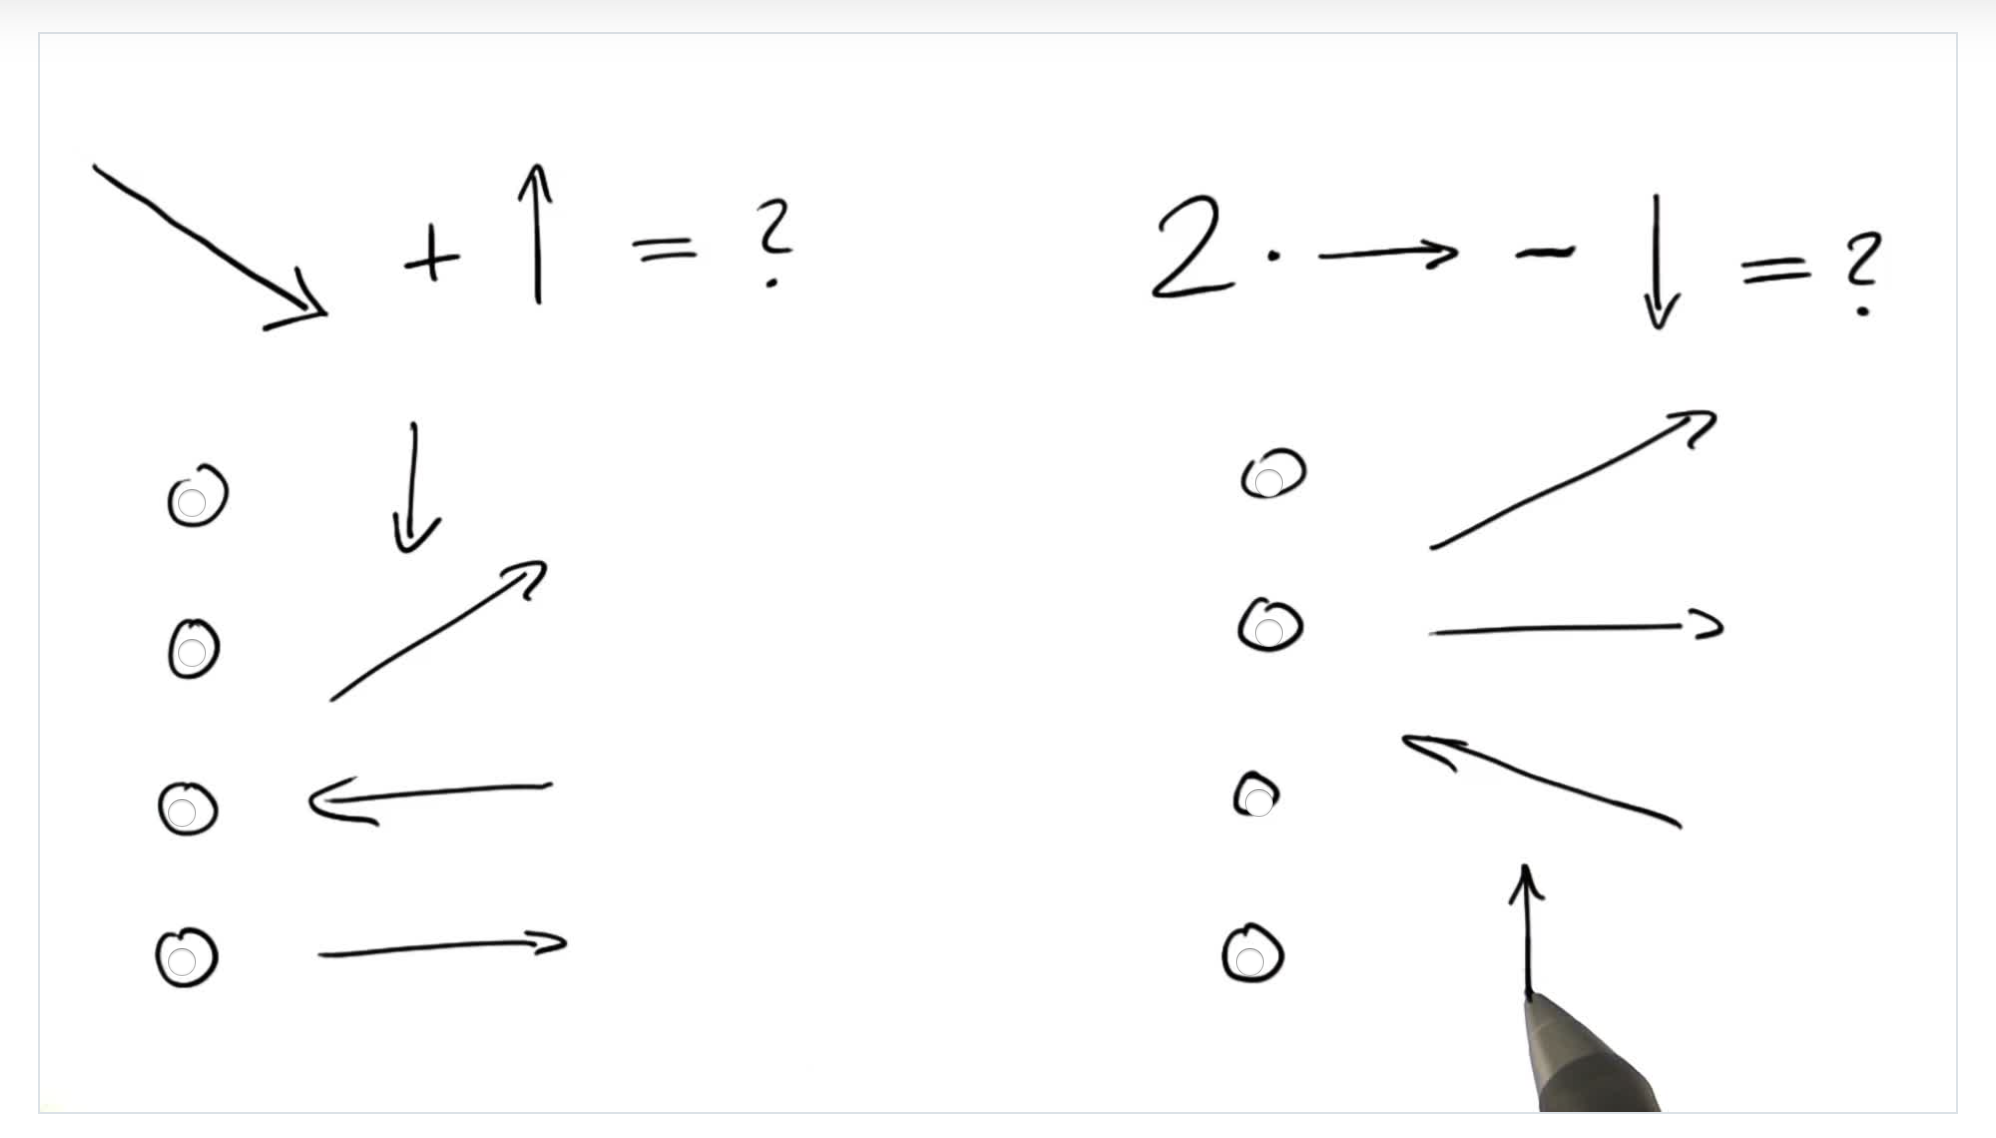 ↘ + ↑ = ?
2 · → - ↓ = ?